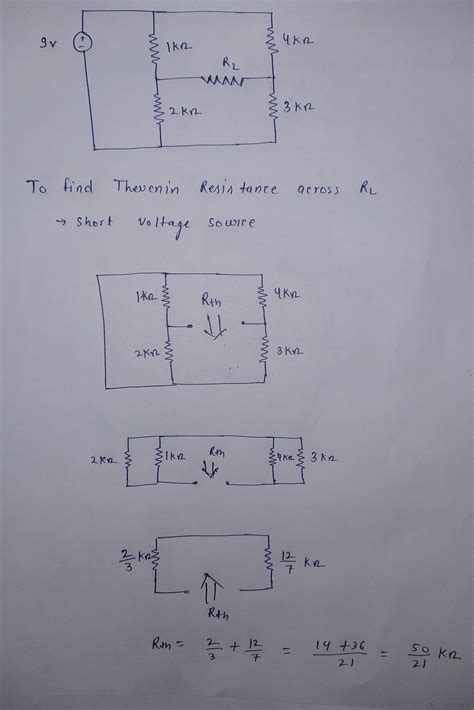 9v
+
-
1KΩ
4KΩ
RL
2KΩ
3KΩ
To find Thevenin Resistance across RL
→ Short voltage source
1KΩ
Rth
4KΩ
2KΩ
3KΩ
2KΩ
1KΩ
Rth
4KΩ
3KΩ
2/3 KΩ
12/7 KΩ
Rth
Rth = 2/3 + 12/7 = 14 + 36/21 = 50/21 KΩ